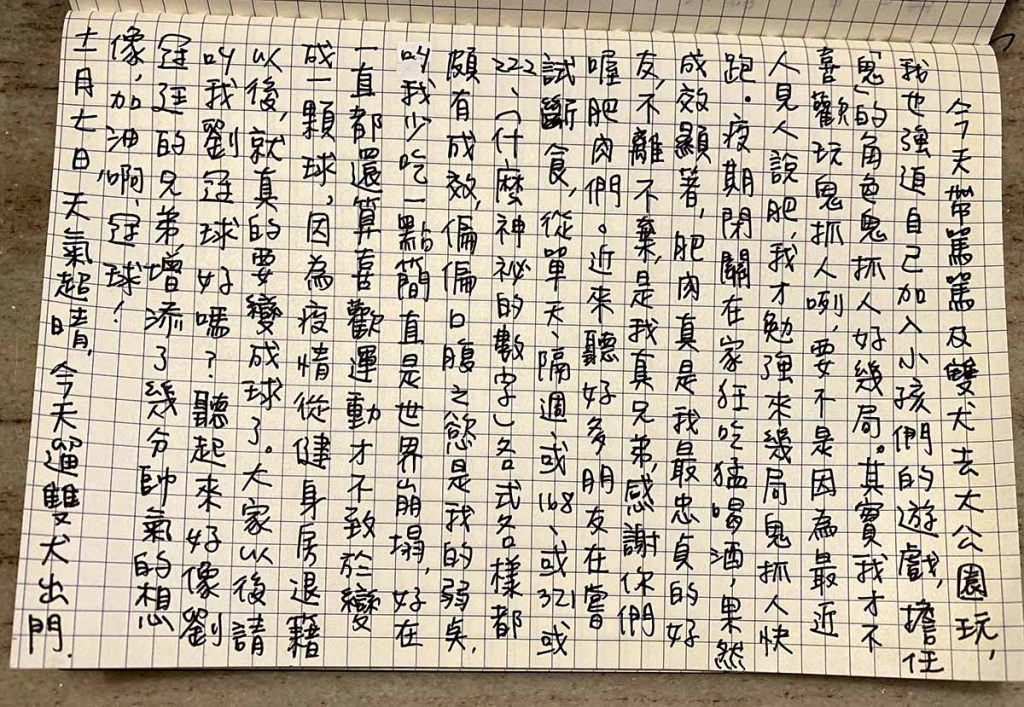 今天帶篤篤及雙犬去大公園玩，
我也強迫自己加入小孩們的遊戲，擔任
「鬼」的角色鬼抓人好幾局。其實我才不
喜歡玩鬼抓人咧，要不是因為最近
人見人說肥，我才勉強來幾局鬼抓人快
跑。疫期閉關在家狂吃猛喝酒，果然
成效顯著，肥肉真是我最忠貞的好
友，不離不棄，是我真兄弟，感謝你們
喔肥肉們。近來聽好多朋友在嘗
試斷食，從單天、隔週、或168、或321或
222、（什麼神祕的數字）各式各樣都
頗有成效，偏偏口腹之慾是我的弱點，
叫我少吃一點簡直是世界崩塌，好在
一直都還算喜歡運動才不致於變
成一顆球，因為疫情從健身房退籍
以後，就真的要變成球了。大家以後請
叫我劉冠球好嗎？聽起來好像劉
冠廷的兄弟，增添了幾分帥氣的想
像，加油啊，冠球！
十一月七日，天氣超晴，今天遛雙犬出門.